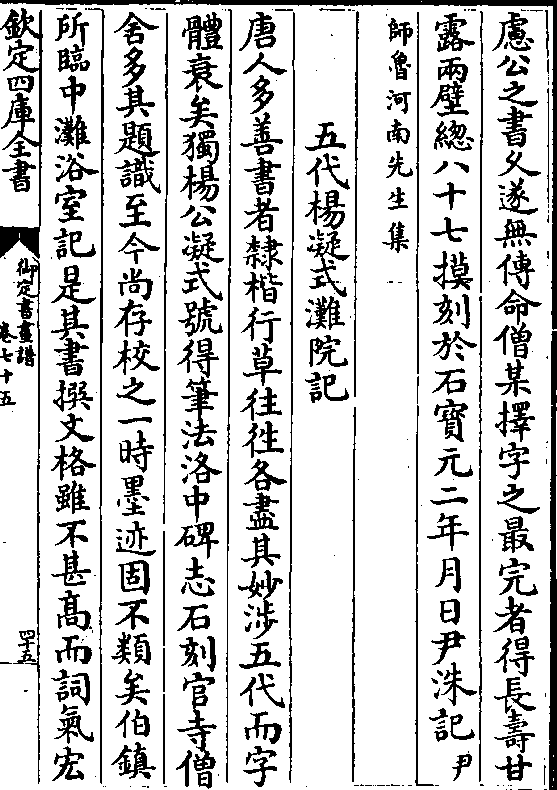 慮公之書乆遂無傳命僧某擇字之最完者得長壽甘
露兩壁緫八十七摸刻於石寳元二年月日尹洙記尹
師魯河南先生集
五代楊凝式灘院記
唐人多善書者隸楷行草往往各盡其妙涉五代而字
體衰矣獨楊公凝式號得筆法洛中碑志石刻官寺僧
舍多其題識至今尚存校之一時墨迹固不類矣伯鎮
所臨中灘浴室記是其書撰文格雖不甚髙而詞氣宏
欽定四庫全書
御定書畫譜
卷七十五
四十五